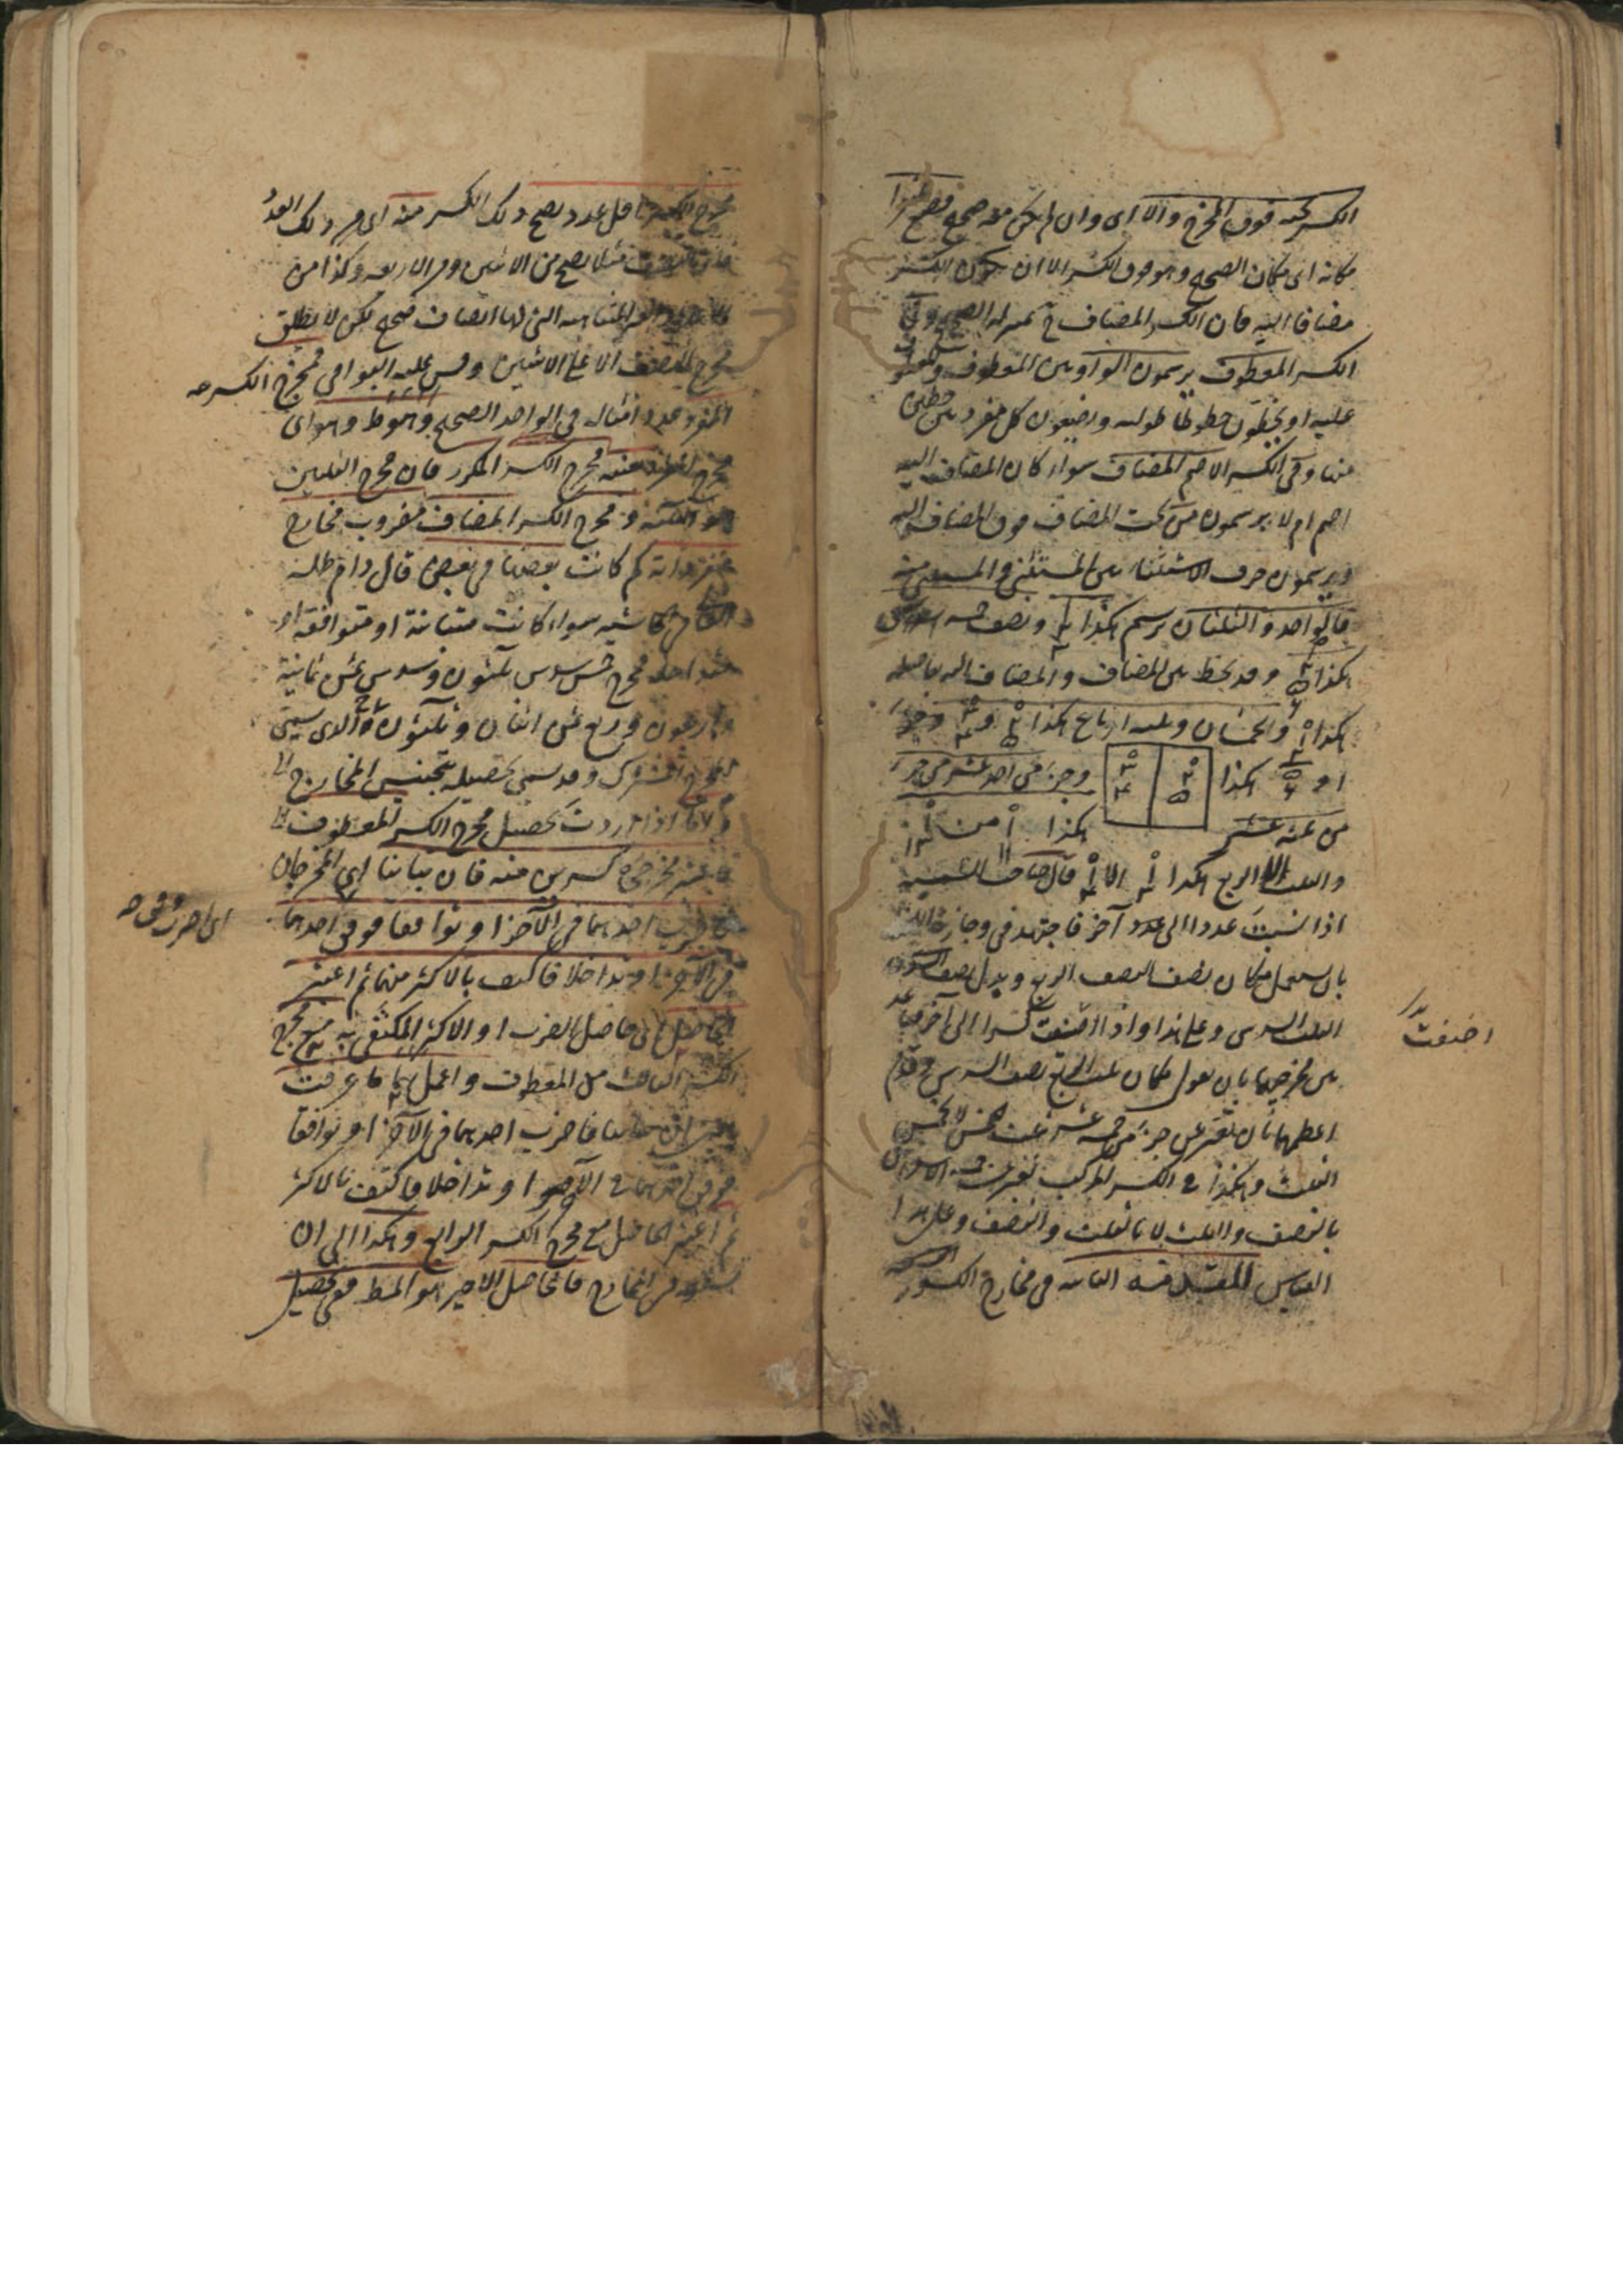 الكسر تحته فوق المخرج والا اى وان لم يكن معه صحيح فضع صفرا
مكانه اى مكان الصحيح وهو فوق الكسر الا ان يكون الكسر
مضافا اليه فان الكسر المضاف ح بمنزلة الصحيح وفى
الكسر المعطوف يرسمون الواو بين المعطوف والمعطوف
عليه او يخطون خطوطا طولية ويضعون كل مفرد بين خطين
منها وفى الكسر الاصم المضاف سواء كان المضاف اليه
اصم ام لا يرسمون من تحت المضاف فوق المضاف اليه
ويرسمون حرف الاستثناء بين المستثنى والمستثنى منه
فالواحد والثلثان يرسم هكذا ونصف خمسة اسداس
هكذا وقد يخط بين المضاف والمضاف اليه فاصلة
هكذا والخمسان وثلثة ارباع هكذا و
او هكذا وجزء من احد عشر من جزء
من ثلثة عشر هكذا ١ من
والثلث الا الربع هكذا الا قال
اذا نسبت عددا الى عدد آخر فاجتهد فى وجازة
بان يستعمل مكان نصف النصف الربع وبدل نصف
الثلث السدس وعلى هذا واذا اضفت كسرا الى آخر
بين مخرجيهما بان تقول مكان ثلث الربع نصف السدس وقدم
اعظمهما بان تعبر عن جزء من خمسة عشر بثلث الخمس لا بخمس
الثلث وهكذا فى الكسر المركب
بالنصف والثلث لا بالثلث والنصف وعلى هذا
القياس المقدمة الثانية فى مخارج الكسور
اضفت
مخرج الكسر اقل عدد يصح ذلك الكسر منه اى من ذلك العدد
فان النصف مثلا يصح من الاثنين ومن الاربعة وكذا من
الغير المتناهية التى لها انصاف صحيح لكن لا يطلق
مخرج النصف الا على الاثنين وقس عليه البواقى فمخرج الكسر
المفرد عدد امثاله فى الواحد الصحيح وهو ظ وهو اى
مخرج المفرد بعينه مخرج الكسر المكرر فان مخرج الثلثين
هو الثلثة ومخرج الكسر المضاف مضروب مخارج
مفرداته كم كانت بعضها فى بعض قال دام ظله
فى الحاشية سواء كانت متباينة او متوافقة او
متداخلة فمخرج خمس سدس ثلثون وسدس ثمن ثمانية
واربعون وربع ثمن اثنان وثلثون والذى يسمى
المخرج المشترك وقد سمى تحصيله بتجنيس المخارج
اذا اردت تحصيل مخرج الكسر المعطوف
فاعتبر مخرجى كسرين منه فان تباينا اى المخرجان
فاضرب احدهما فى الآخر او توافقا فوفق احدهما
فى الآخر او تداخلا فاكتف بالاكثر منهما ثم اعتبر
الحاصل اى حاصل الضرب او الاكثر المكتفى به مع مخرج
الكسر الثالث من المعطوف واعمل بهما ما عرفت
تباينا فاضرب احدهما فى الآخر او توافقا
فوفق احدهما فى الآخر او تداخلا فاكتف بالاكثر
ثم اعتبر الحاصل مع مخرج الكسر الرابع وهكذا الى ان
المخارج فالحاصل الاخير هو المط ففى تحصيل
اى اضرب وفق